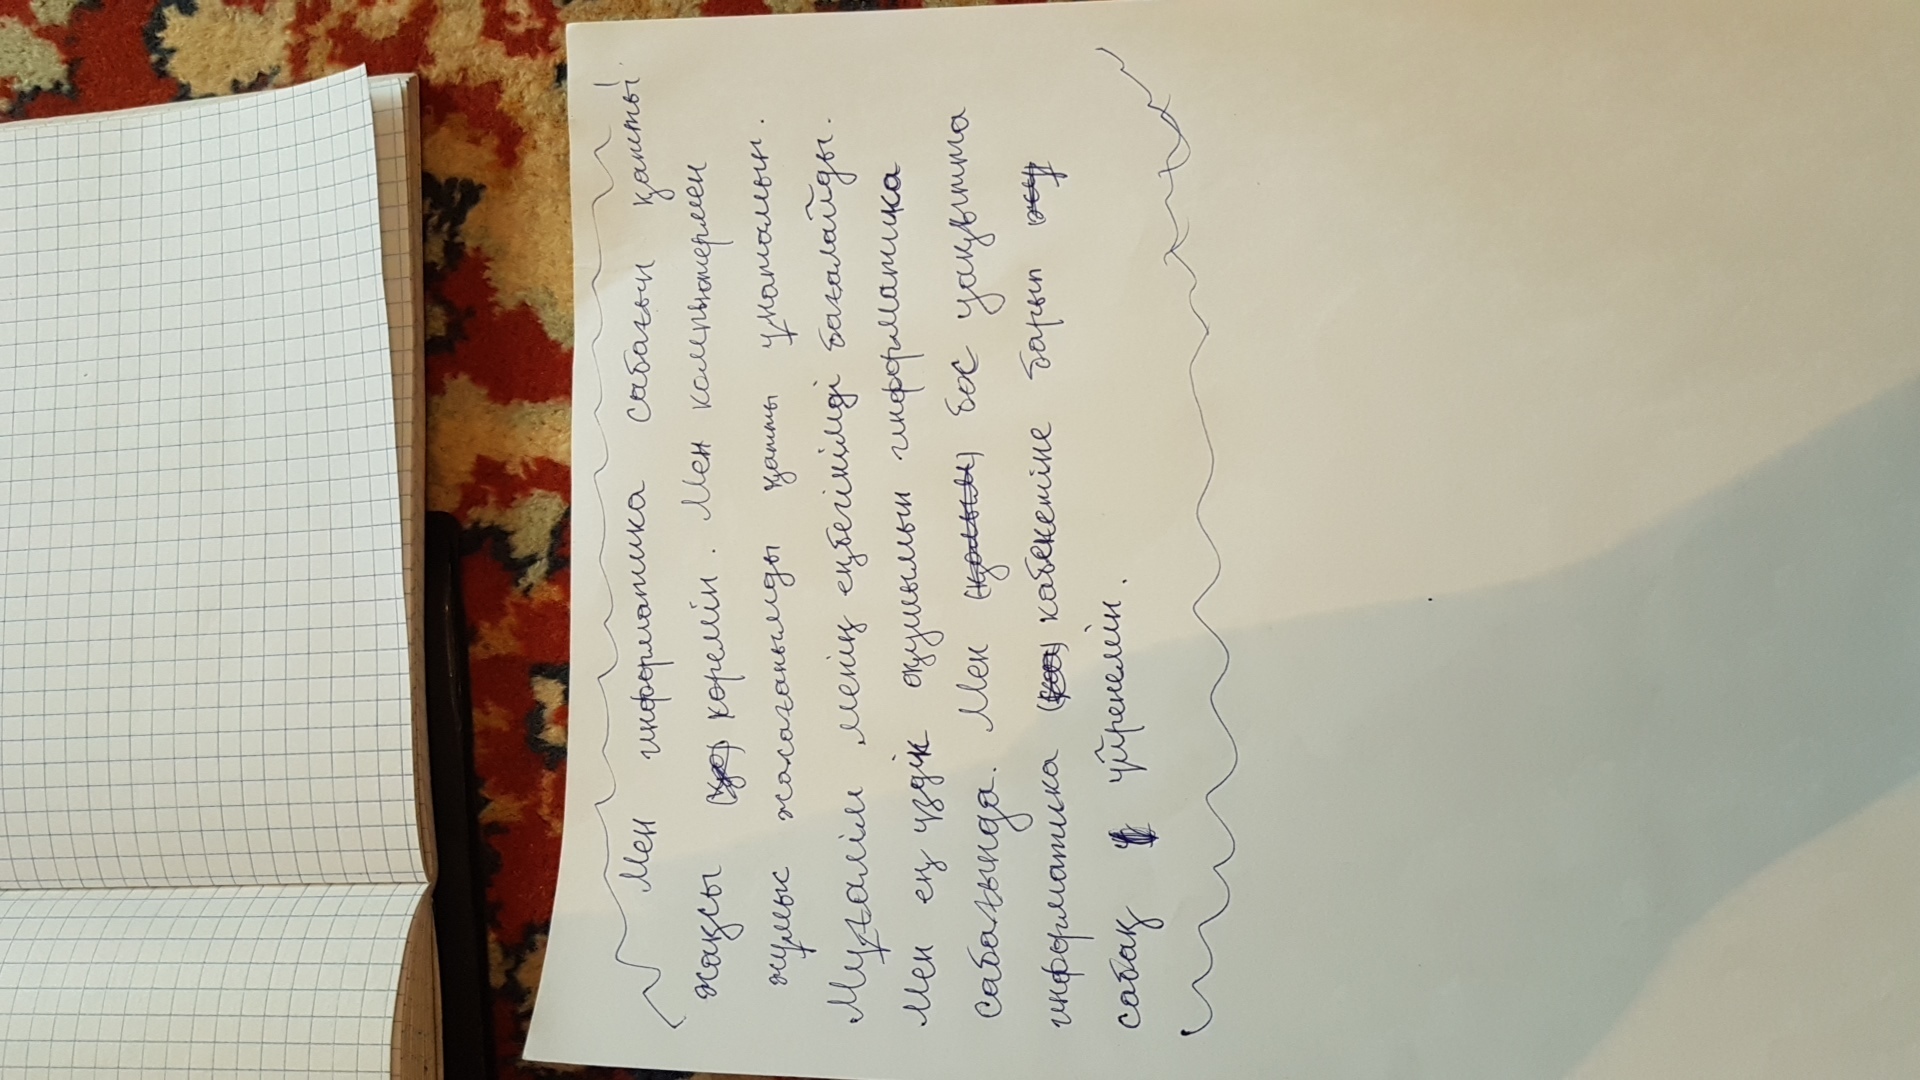 Мен информатика сабағын қатты
жақсы көремін. Мен компьютермен
жұмыс жасағанымды қатты ұнатамын.
Мұғалім менің еңбегімді бағалайды.
Мен ең үздік оқушымын информатика
сабағында. Мен бос уақытта
информатика кабекетіне барып
сабақ үйренемін.